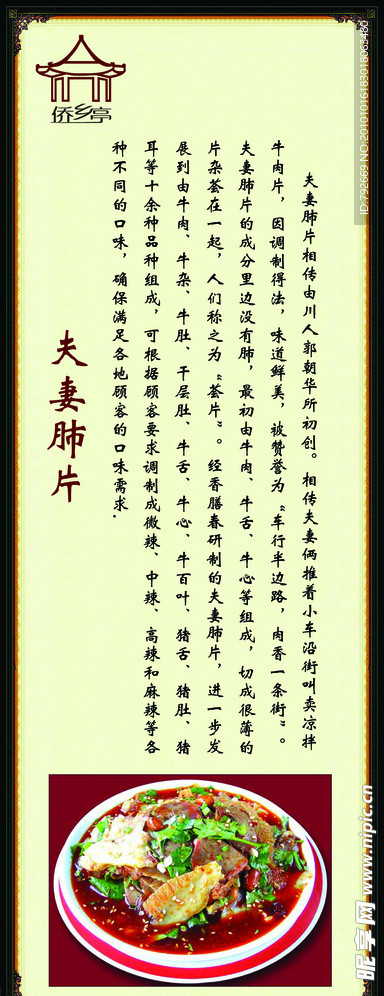 侨乡亭
夫妻肺片
夫妻肺片相传由川人郭朝华所初创。相传夫妻俩推着小车沿街叫卖凉拌
牛肉片，因调制得法，味道鲜美，被赞誉为“车行半边路，肉香一条街”。
夫妻肺片的成分里边没有肺，最初由牛肉、牛舌、牛心等组成，切成很薄的
片杂荟在一起，人们称之为“荟片”。经香膳春研制的夫妻肺片，进一步发
展到由牛肉、牛杂、牛肚、千层肚、牛舌、牛心、牛百叶、猪舌、猪肚、猪
耳等十余种品种组成，可根据顾客要求调制成微辣、中辣、高辣和麻辣等各
种不同的口味，确保满足各地顾客的口味需求.
ID:792669 NO:20101016183018063480
昵享网 www.nipic.cn